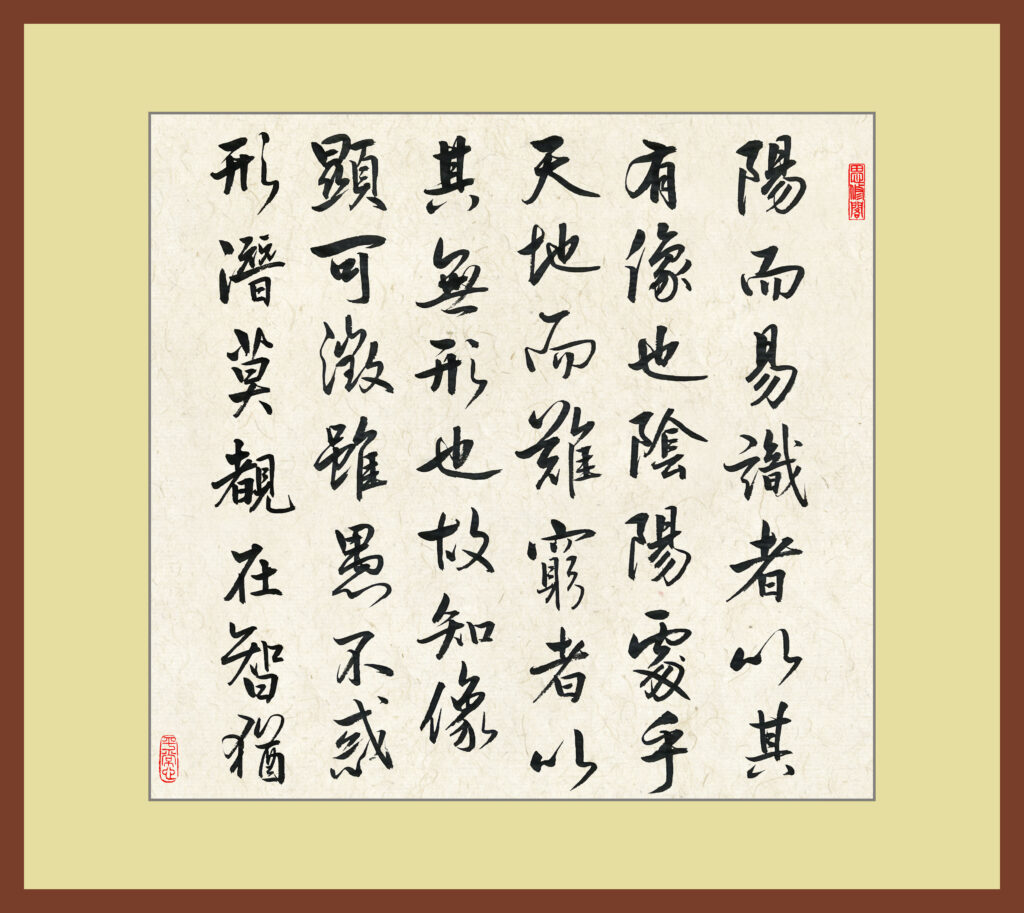 思修閣
陽而易識者以其
有像也陰陽處乎
天地而難窮者以
其無形也故知像
顯可徵雖愚不惑
形潛莫覩在智猶
平常心